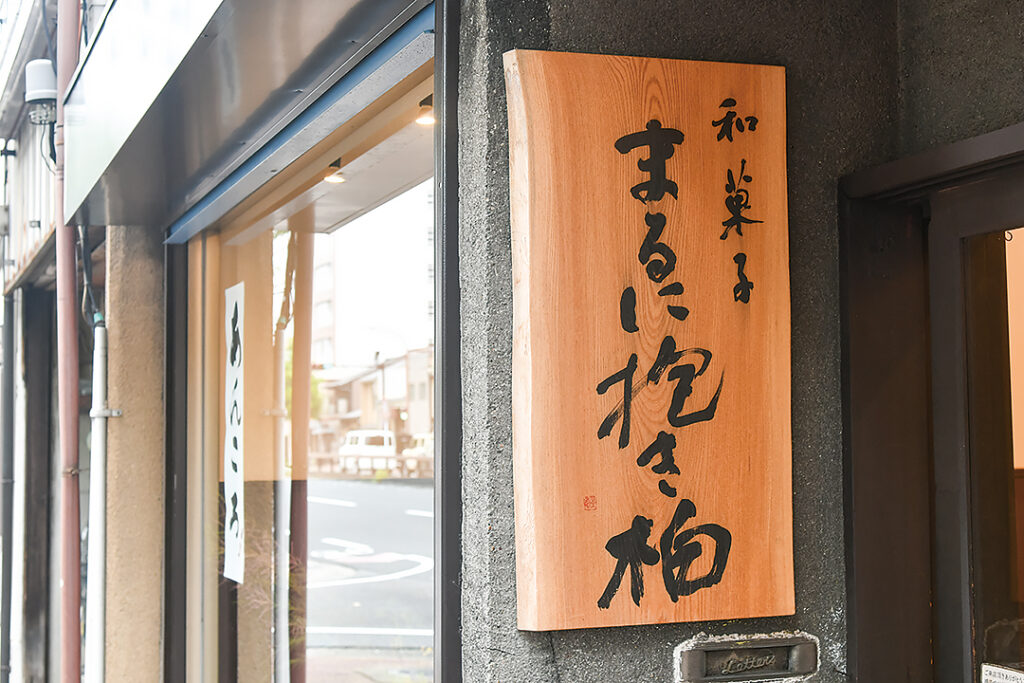 和菓子
まるに抱き柏
あんころ
Letters